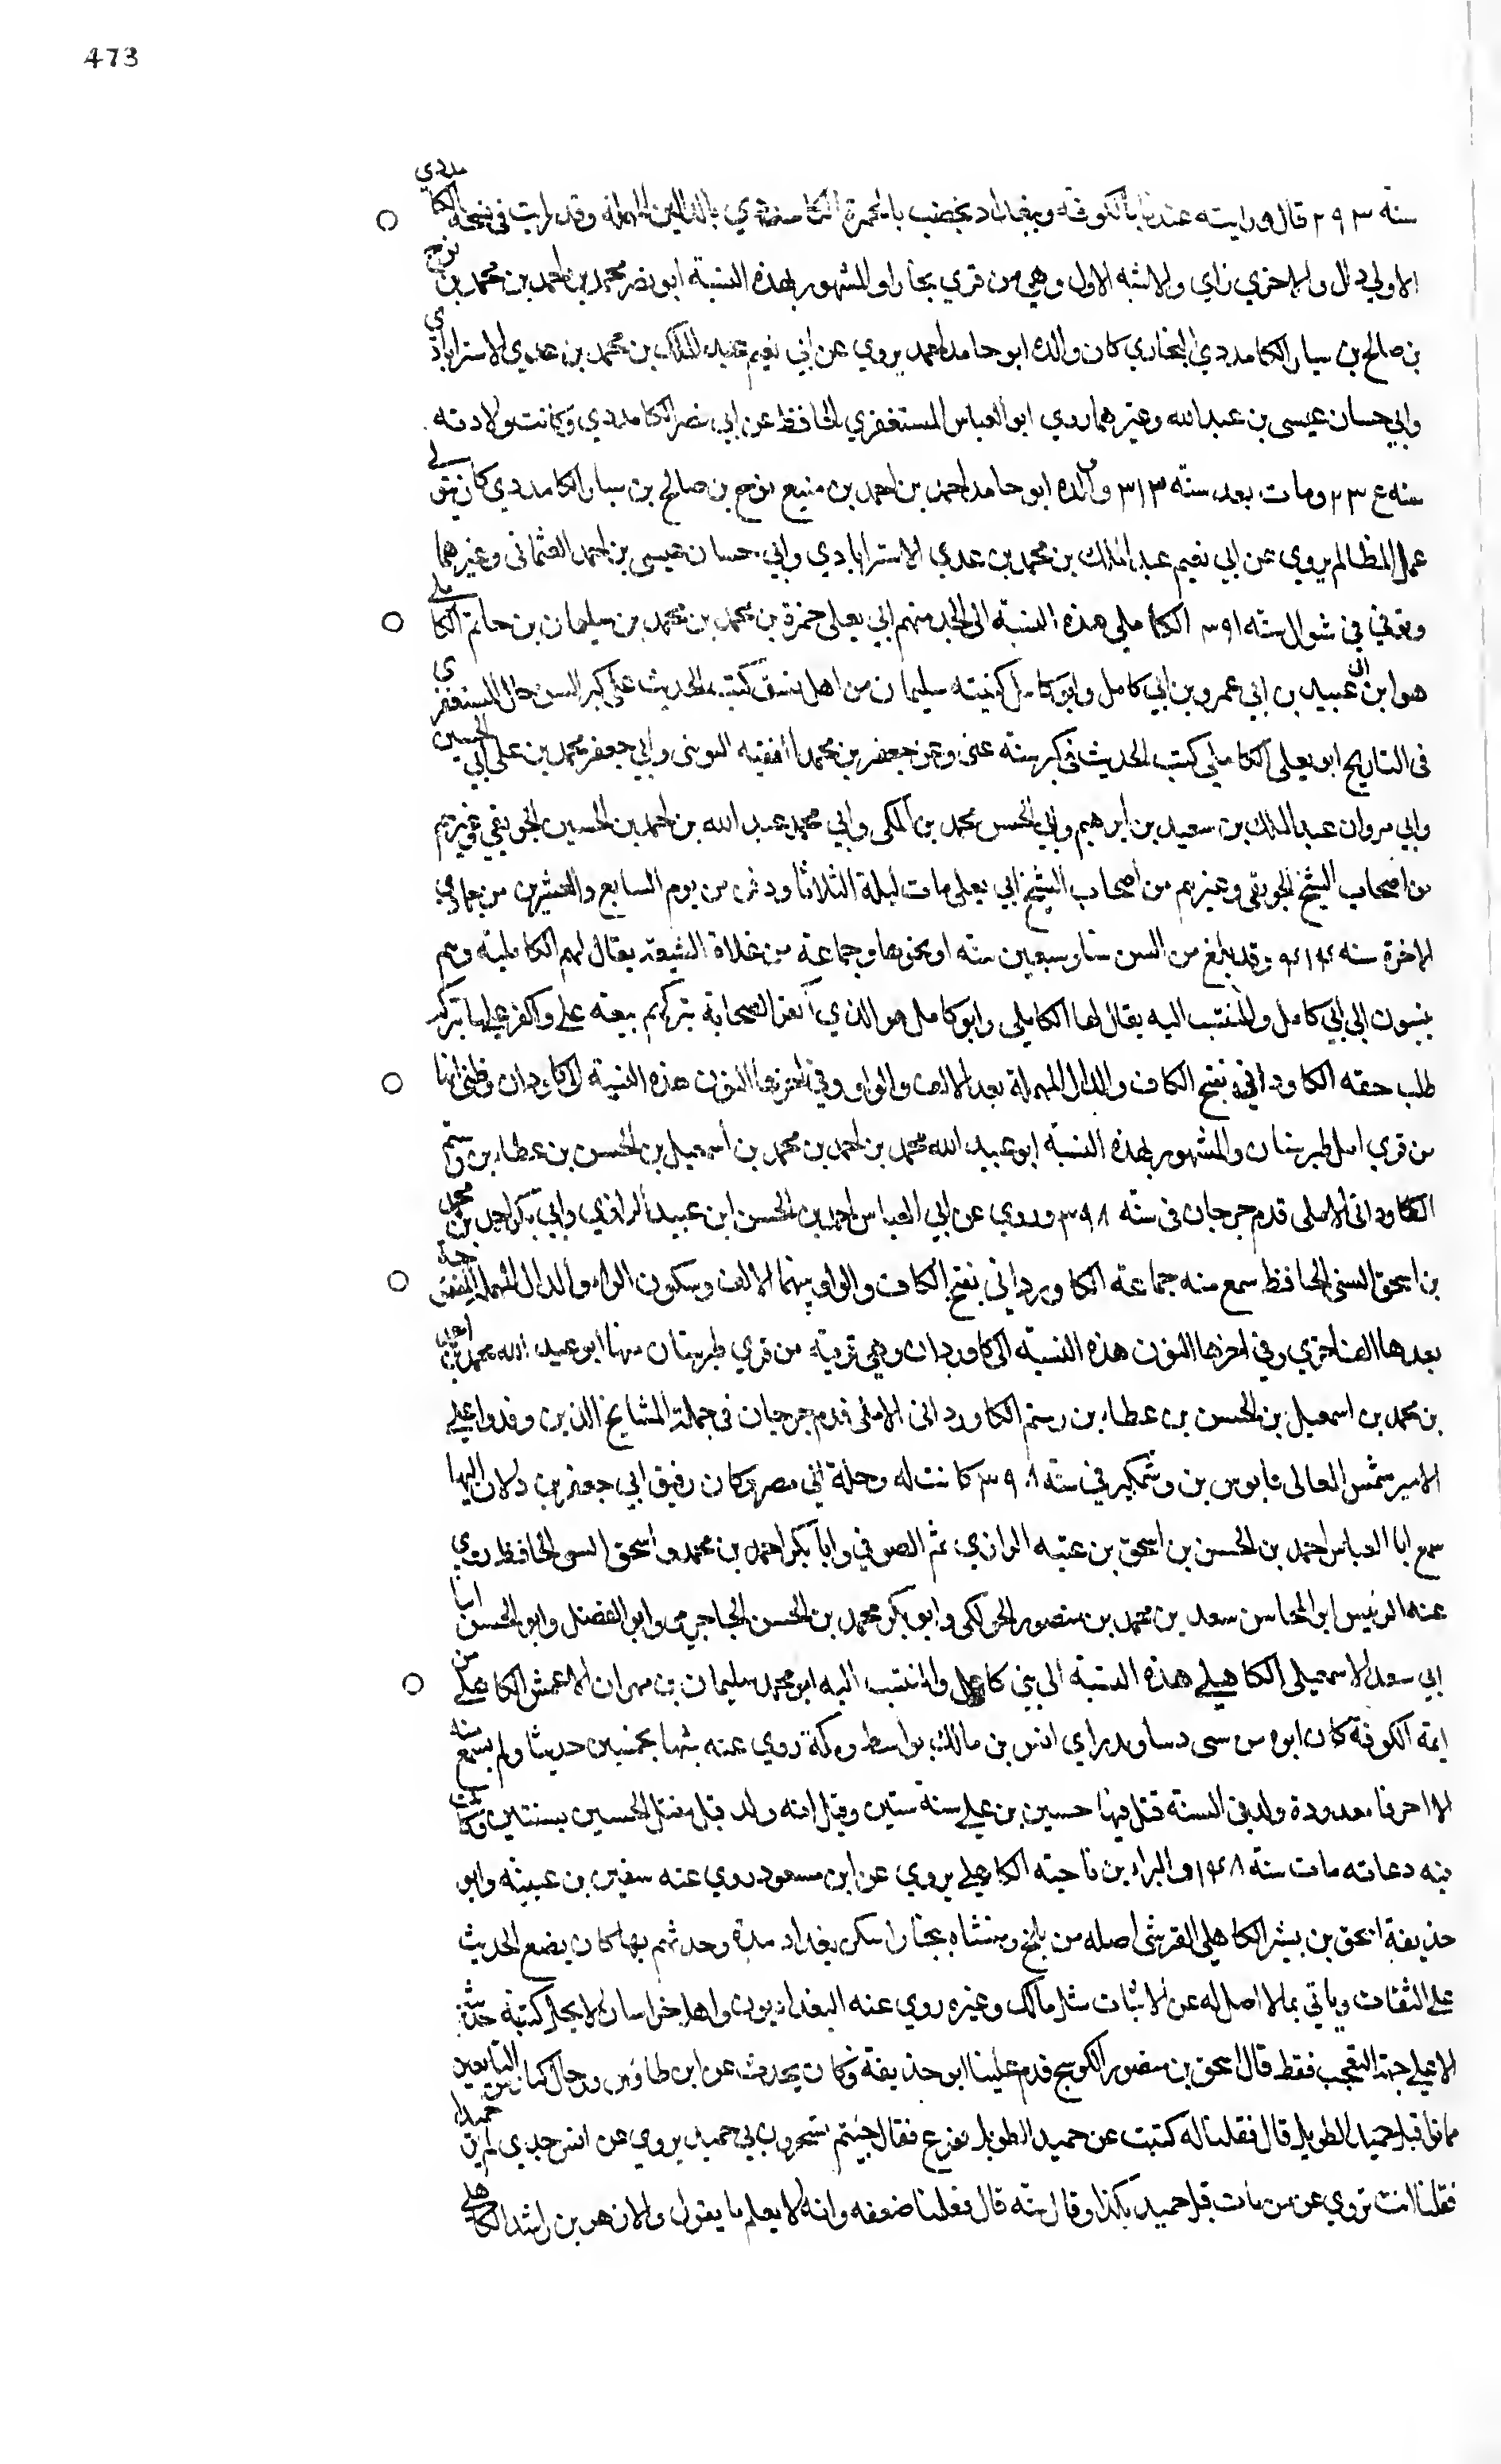 473
سنه ٢٩٣ قال ورايته عندنا بالكوفة وببغداد يخضب بالحمرة الكامددي بالدالين المهملة وقد رايت في نسخة الكامددي
الاولي دال والاخري زاي والاشبه الاول وهي من قري بخارا والمشهور بهذه النسبة ابو نصر محمد بن احمد بن محمد بن نوح
بن صالح بن سيار الكامددي البخاري كان والده ابو حامد احمد يروي عن ابي نعيم عبد الملك بن محمد بن عدي الاسترابادي
وابي حسان عيسى بن عبد الله وغيرهما روي ابو العباس المستغفري الحافظ عن ابي نصر الكامددي وكانت ولادته
سنه ومات بعد سنه ٣١٣ ووالده ابو حامد احمد بن احمد بن منيع نوح بن صالح بن سيار الكامددي كان يتولي
عمل المظالم يروي عن ابي نعيم عبد الملك بن محمد بن عدي الاسترابادي وابي حسان عيسى بن احمد العثماني وغيرهما
وتوفي في شوال سنه ٣٩١ الكاملي هذه النسبة الى الجد منهم ابي يعلى حمزة بن محمد بن محمد بن سليمان بن حاتم الكاملي
هو ابن ابي عبيد بن ابي عمرو بن ابي كامل وابو كامل كنيته سليمان من اهل نسف كتب الحديث على كبر السن قال المستغفري
فى التاريخ ابو يعلى الكاملي كتب الحديث في كبر سنه عني وعن جعفر بن محمد الفقيه وابي جعفر محمد بن علي ابي الحسين
وابي مروان عبد الملك بن سعيد بن ابرهيم وابي الحسن محمد بن المكي وابي محمد عبد الله بن احمد بن الحسين وغيرهم
من اصحاب الشيخ وغيرهم من اصحاب الشيخ ابي يعلى مات ليلة الثلاثا ودفن من يوم السابع والعشرين من جمادي
الاخرة سنه وقد بلغ من السن ستا وسبعين سنه او نحوها وجماعة من غلاة الشيعة يقال لهم الكاملية وهم
ينسبون الى ابي كامل والمنتسب اليه يقال لها الكاملي وابو كامل هو الذي اكفر الصحابة بتركهم بيعة علي واكفر عليا بتركه
طلب حقه الكاوداني بفتح الكاف والدال المهملة بعد الالف والواو وفي اخرها النون هذه النسبة الى كاودان وظني انها
من قري امل طبرستان والمشهور بهذه النسبة ابو عبيد الله محمد بن احمد بن محمد بن اسمعيل بن الحسن بن عطاء بن رستم
الكاوداني الاملي قدم جرجان في سنه ٣٩٨ وروي عن ابي العباس احمد بن الحسن ابن عبيد الرازي وابي بكر احمد بن محمد
بن اسحق السني الحافظ سمع منه جماعة الكاورداني بفتح الكاف والواو بينهما الالف وسكون الراء والدال المهملة المفتوحة
بعدها الف اخري وفي اخرها النون هذه النسبة الى كاوردان وهي قرية من قري طبرستان منها ابو عبيد الله محمد بن احمد
بن محمد بن اسمعيل بن الحسن بن عطاء بن رستم الكاورداني الاملي قدم جرجان في جملة المشايخ الذين وفدوا علي
الامير شمس المعالي قابوس بن وشمكير في سنه ٣٩٨ كانت له رحلة الي مصر وكان رفيق ابي جعفر بن دلان اليها
سمع ابا العباس احمد بن الحسن بن اسحق بن عتبه الرازي ثم الصوفي وابا بكر احمد بن محمد واسحق السني الحافظ روي
عنه الرئيس ابو المحاسن سعد بن محمد بن منصور الجولكي وابو بكر محمد بن الحسن الجاجرمي وابو الفضل وابو الحسن ابنا
ابي سعد الاسمعيلي الكاهلي هذه النسبة الى بني كاهل والمنتسب اليه ابو محمد سليمان بن مهران الاعمش الكاهلي من
ايمة الكوفة كان ابوه من سبي دنباوند راي انس بن مالك بواسط ومكة روي عنه شبيها بخمسين حديثا ولم يسمع منه
الا احرفا معدودة ولد في السنة قتل فيها حسين بن علي سنة ستين وقيل انه ولد قبل مقتل الحسين بسنتين وكانت
فيه دعابه مات سنة ١٤٨ والبراء بن ناجيه الكاهلي يروي عن ابن مسعود روي عنه سفين بن عيينه وابو
حذيفة اسحق بن بشر الكاهلي القرشي اصله من بلخ ومنشاه بخارا سكن بغداد مدة وحدثهم بها كان يضع الحديث
علي الثقات وياتي بما لا اصل له عن الاثبات مثل مالك وغيره روي عنه البغداديون واهل خراسان لا يحل كتبة حديثه
الا علي جهة التعجب فقط قال اسحق بن منصور الكوسج قدم علينا ابو حذيفة وكان يحدث عن ابن طاؤس ورجال كبار من التابعين
ماتوا قبل حميد الطويل قال فقلنا له كتبت عن حميد الطويل ففزع فقال جيتم تسخرون بي حميد يروي عن انس جدي لم ير حميدا
فقلنا انت تروي عن من مات قبل حميد بكذا وكذا سنه قال فعلمنا ضعفه وانه لا يعلم ما يقول والازهر بن راشد الكاهلي